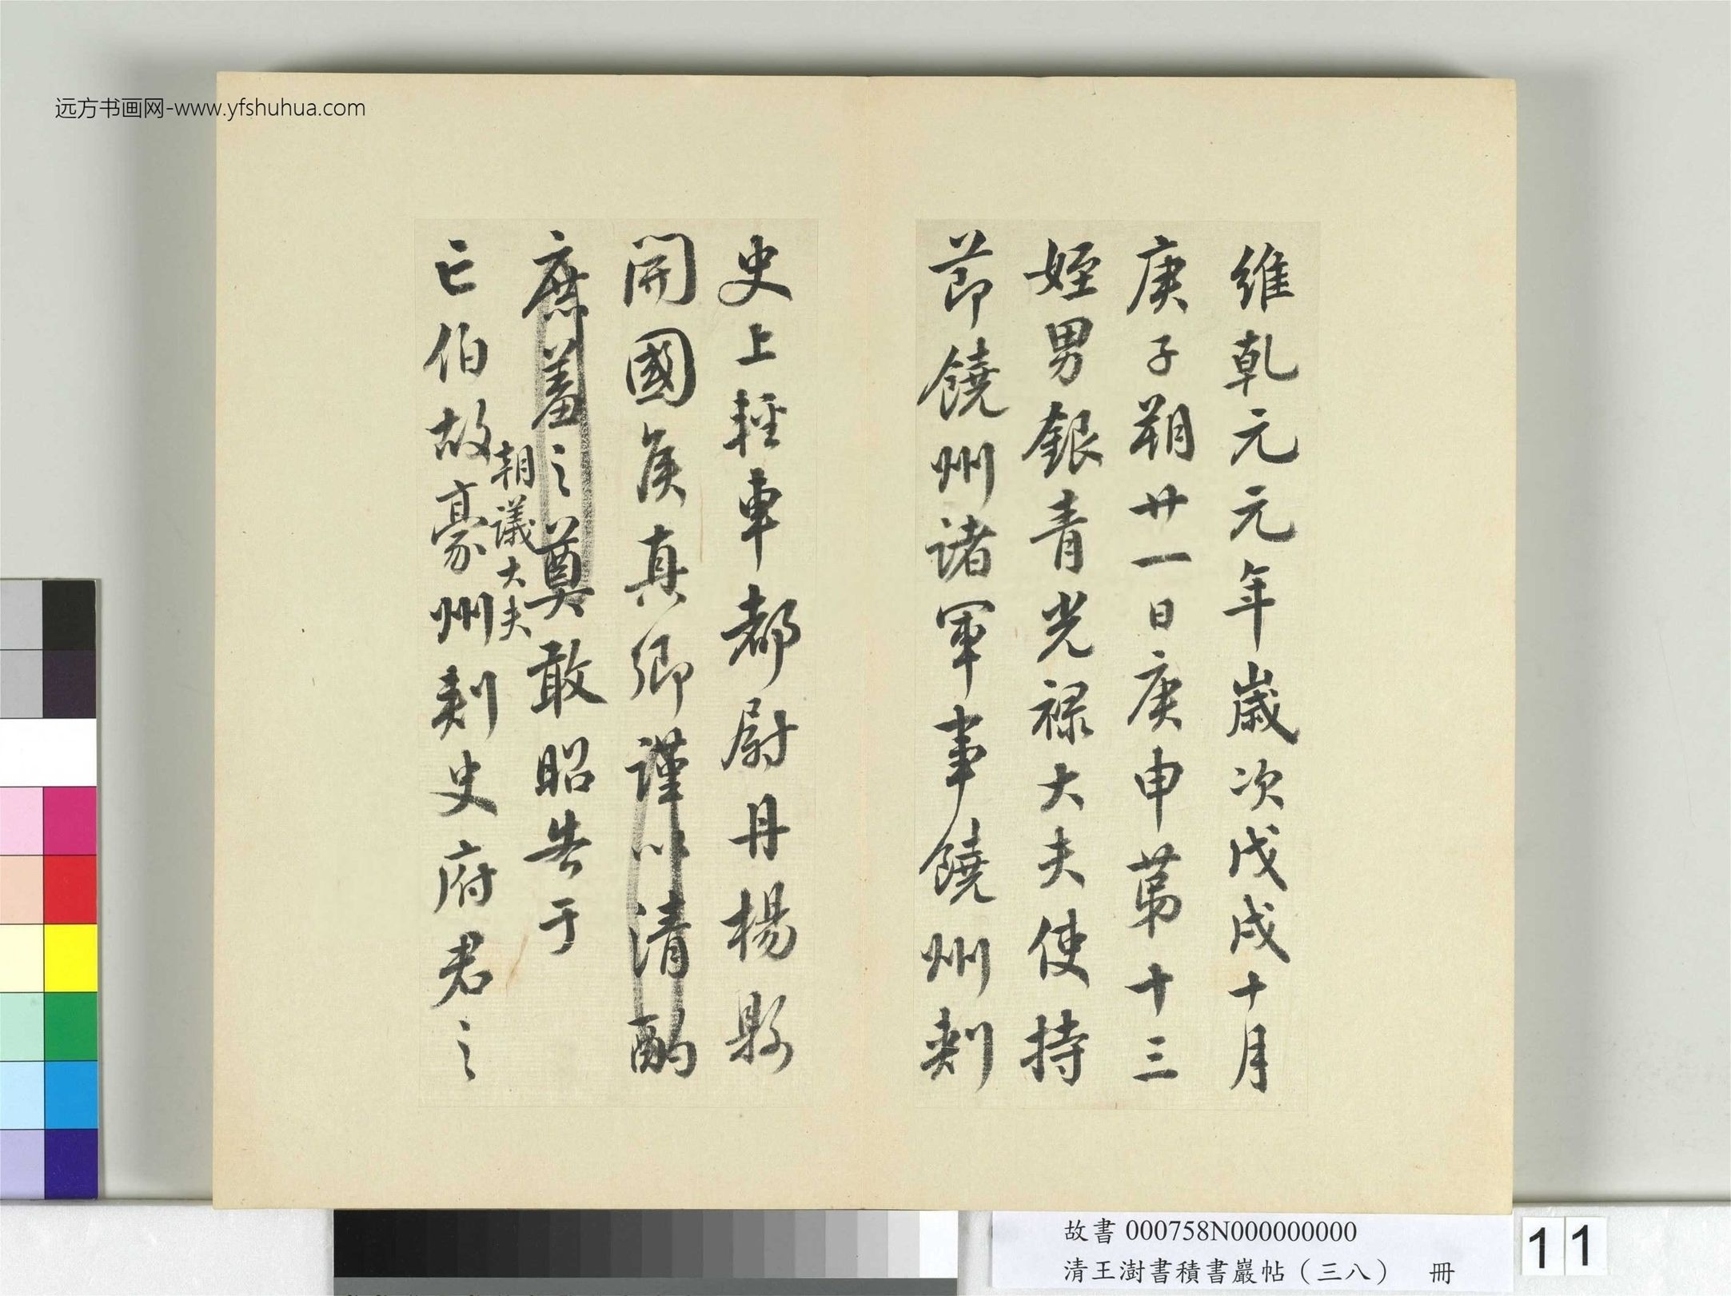 远方书画网-www.yfshuhua.com
維乾元元年歲次戊戌十月
庚子朔廿一日庚申第十三
姪男銀青光禄大夫使持
節饒州诸軍事饒州刺
史上輕車都尉丹楊縣
開國侯真卿謹以清酌
庶羞之奠敢昭告于
朝議大夫
亡伯故豪州刺史府君之
故書000758N000000000
清王澍書積書巖帖（三八） 冊
11